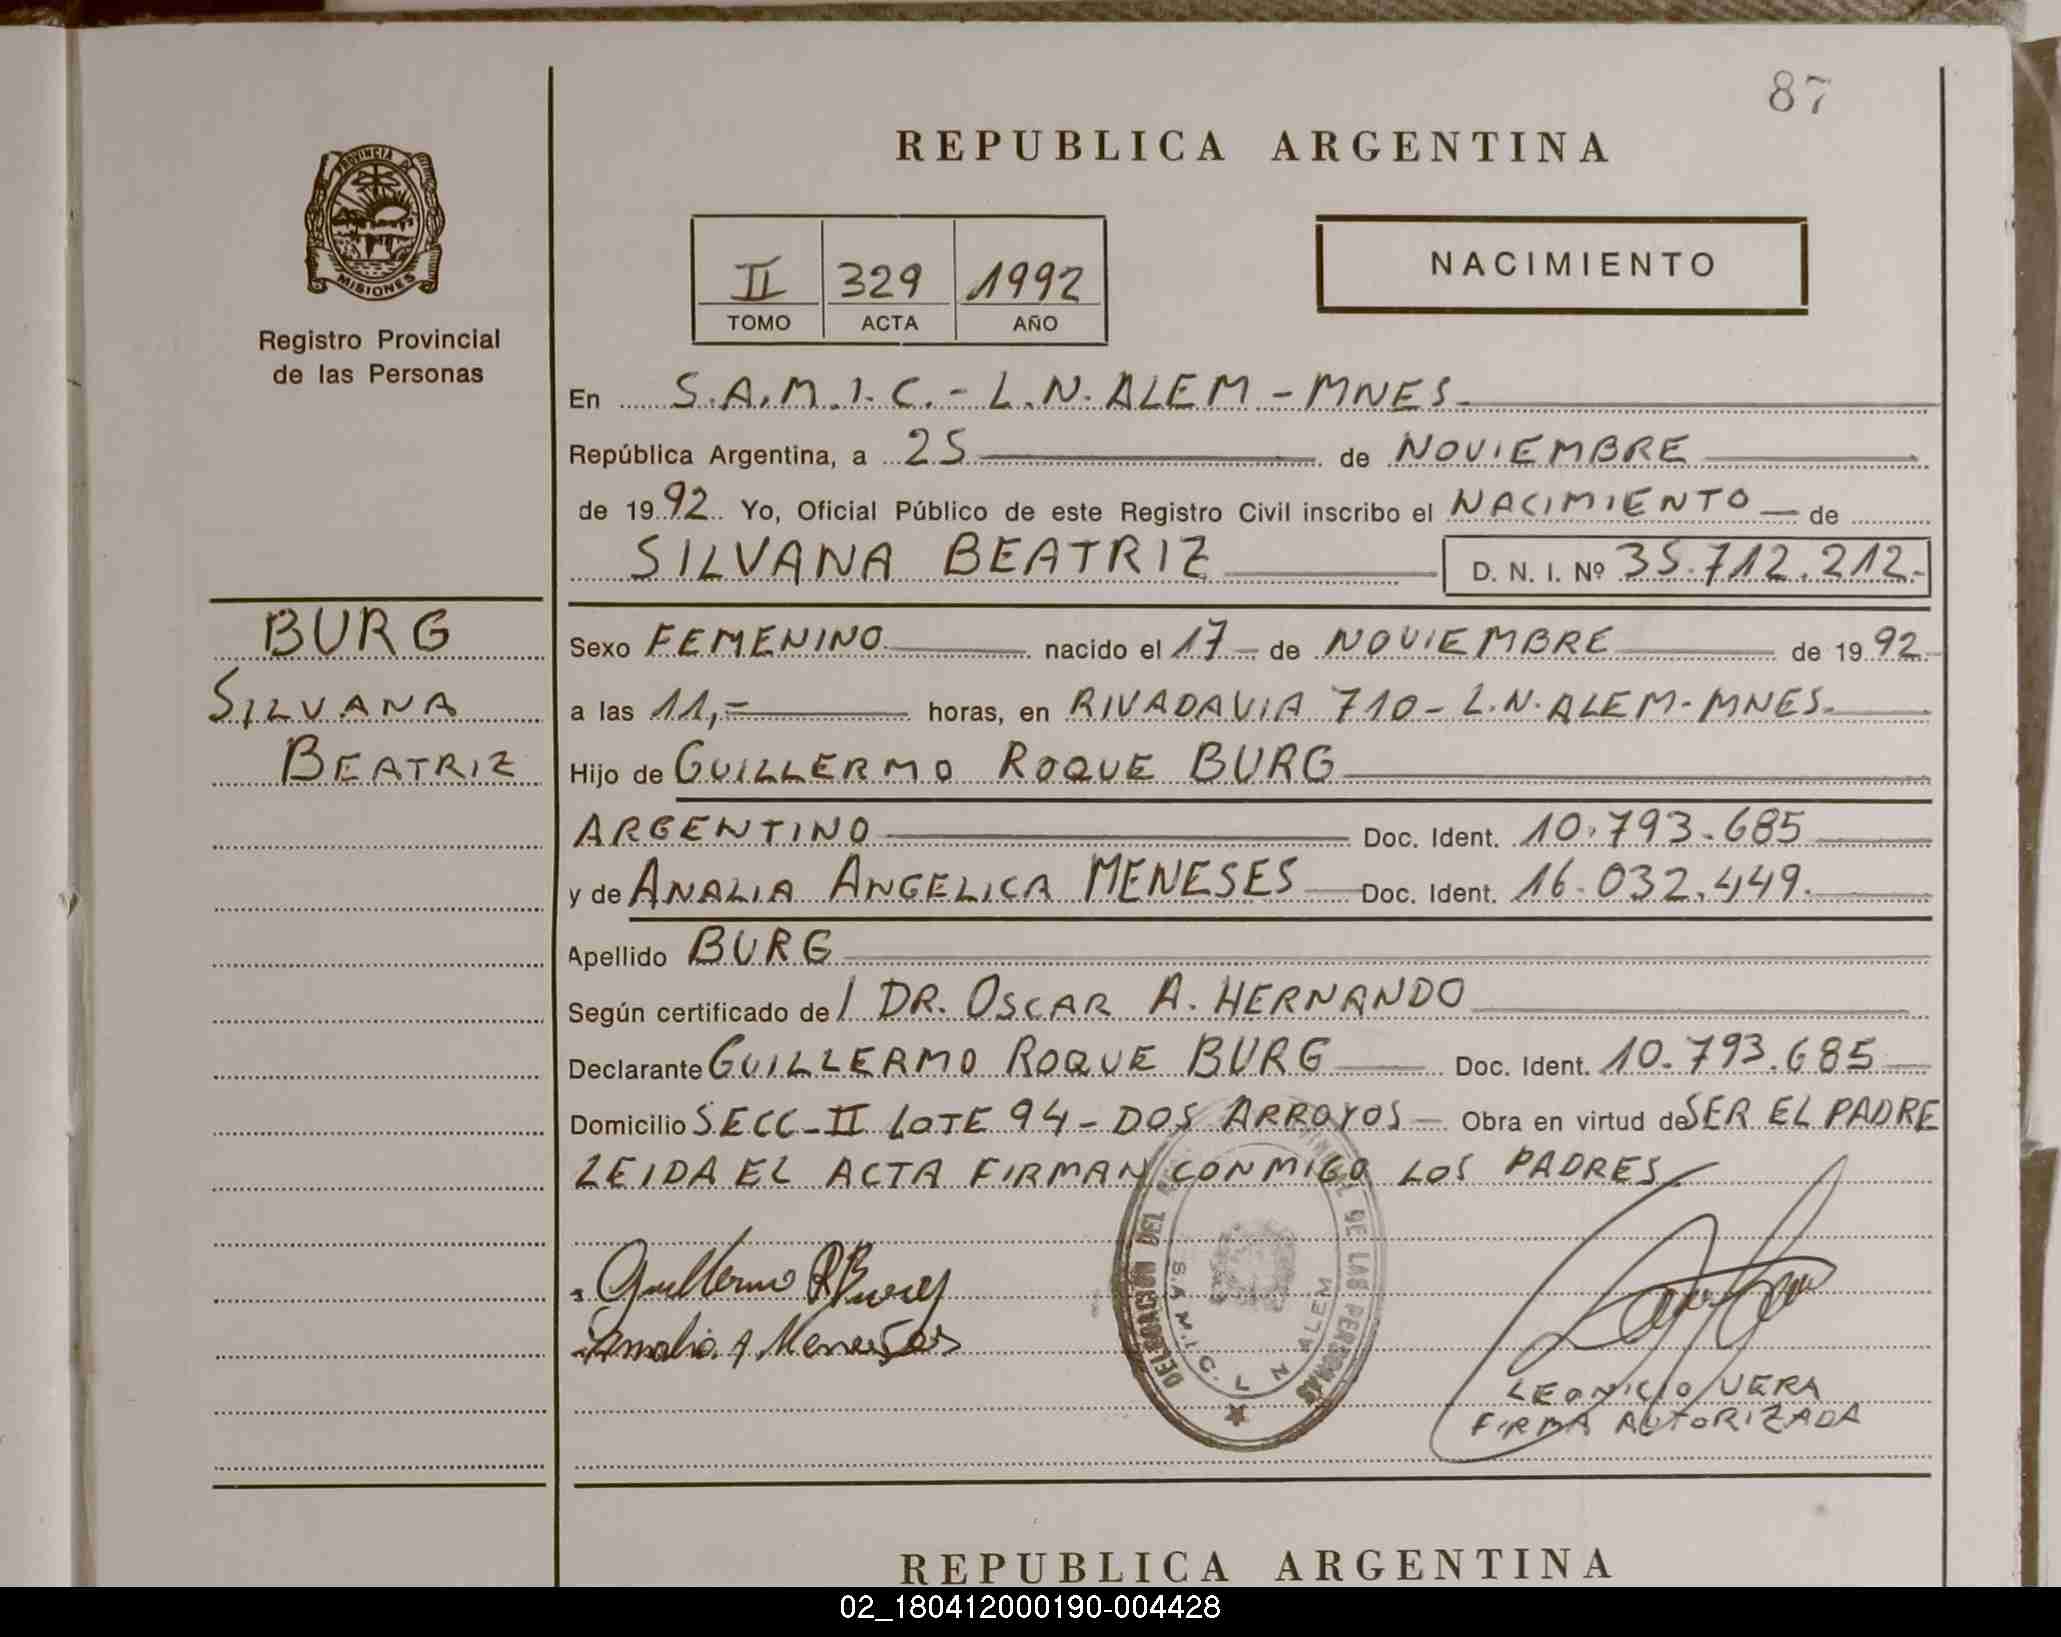 87
REPUBLICA ARGENTINA
PROVINCIA DE
MISIONES
Registro Provincial
de las Personas
II 329 1992
TOMO ACTA AÑO
NACIMIENTO
En S.A.M.I.C.- L.N. ALEM - MNES.
República Argentina, a 25 de NOVIEMBRE
de 1992 Yo, Oficial Público de este Registro Civil inscribo el NACIMIENTO de
SILVANA BEATRIZ D. N. I. Nº 35.712.212.-
BURG
SILVANA
BEATRIZ
Sexo FEMENINO nacido el 17 de NOVIEMBRE de 1992
a las 11,- horas, en RIVADAVIA 710 - L.N. ALEM - MNES.
Hijo de GUILLERMO ROQUE BURG
ARGENTINO Doc. Ident. 10.793.685
y de ANALIA ANGELICA MENESES Doc. Ident. 16.032.449.
Apellido BURG
Según certificado de l DR. OSCAR A. HERNANDO
Declarante GUILLERMO ROQUE BURG Doc. Ident. 10.793.685
Domicilio SECC-II LOTE 94 - DOS ARROYOS Obra en virtud de SER EL PADRE
LEIDA EL ACTA FIRMAN CONMIGO LOS PADRES
Guillermo R Burg
Analia A Meneses
DELEGACION DEL DE LAS PERSONAS
S.A.M.I.C. L N ALEM
LEONICIO VERA
FIRMA AUTORIZADA
REPUBLICA ARGENTINA
02_180412000190-004428